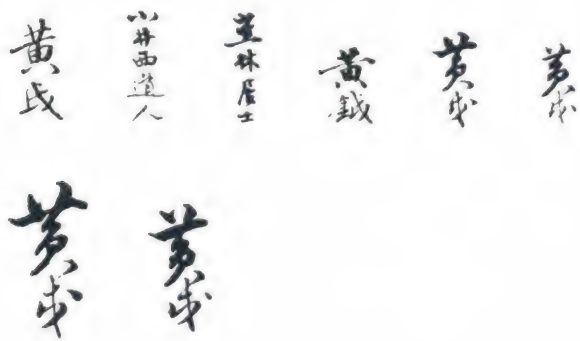 黄戉
小井西道人
林居士
黄鉞
黄戉
黄戉
黄戉
黄戉